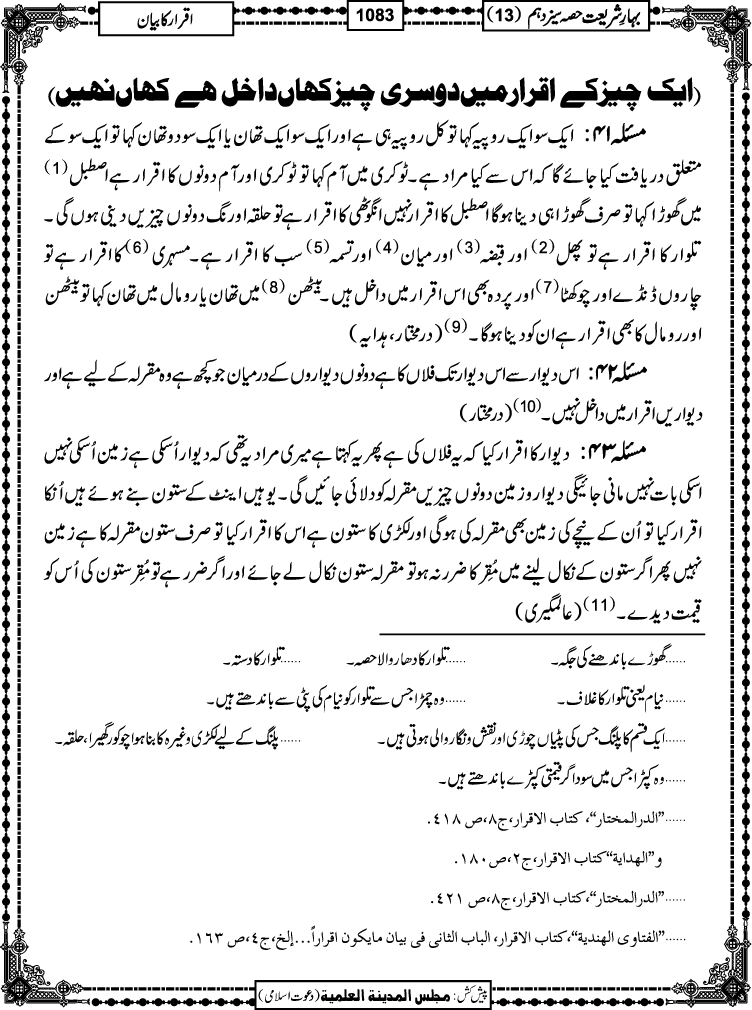 بہارِشریعت حصہ سیزدہم (13)
1083
اقرار کا بیان
(ایک چیز کے اقرار میں دوسری چیز کھاں داخل ھے کھاں نھیں)
مسئلہ ۴۱: ایک سو ایک روپیہ کہا تو کل روپیہ ہی ہے اور ایک سو ایک تھان یا ایک سو دو تھان کہا تو ایک سو کے
متعلق دریافت کیا جائے گا کہ اس سے کیا مراد ہے۔ ٹوکری میں آم کہا تو ٹوکری اور آم دونوں کا اقرار ہے اصطبل (1)
میں گھوڑا کہا تو صرف گھوڑا ہی دینا ہوگا اصطبل کا اقرار نہیں انگوٹھی کا اقرار ہے تو حلقہ اور نگ دونوں چیزیں دینی ہوں گی۔
تلوار کا اقرار ہے تو پھل (2) اور قبضہ (3) اور میان (4) اور تسمہ (5) سب کا اقرار ہے۔ مسہری (6) کا اقرار ہے تو
چاروں ڈنڈے اور چوکھٹا (7) اور پردہ بھی اس اقرار میں داخل ہیں۔ بیٹھن (8) میں تھان یا رومال میں تھان کہا تو بیٹھن
اور رومال کا بھی اقرار ہے ان کو دینا ہوگا۔ (9) (درمختار، ہدایہ)
مسئلہ ۴۲: اس دیوار سے اس دیوار تک فلاں کا ہے دونوں دیواروں کے درمیان جو کچھ ہے وہ مقرلہ کے لیے ہے اور
دیواریں اقرار میں داخل نہیں۔ (10) (درمختار)
مسئلہ ۴۳: دیوار کا اقرار کیا کہ یہ فلاں کی ہے پھر یہ کہتا ہے میری مراد یہ تھی کہ دیوار اُسکی ہے زمین اُسکی نہیں
اسکی بات نہیں مانی جائیگی دیوار و زمین دونوں چیزیں مقرلہ کو دلائی جائیں گی۔ یوہیں اینٹ کے ستون بنے ہوئے ہیں اُنکا
اقرار کیا تو اُن کے نیچے کی زمین بھی مقرلہ کی ہوگی اور لکڑی کا ستون ہے اس کا اقرار کیا تو صرف ستون مقرلہ کا ہے زمین
نہیں پھر اگر ستون کے نکال لینے میں مُقِر کا ضرر نہ ہو تو مقرلہ ستون نکال لے جائے اور اگر ضرر ہے تو مُقِر ستون کی اُس کو
قیمت دیدے۔ (11) (عالمگیری)
......گھوڑے باندھنے کی جگہ۔ ......تلوار کا دھار والا حصہ۔ ......تلوار کا دستہ۔
......نیام یعنی تلوار کا غلاف۔ ......وہ چمڑا جس سے تلوار کو نیام کی پٹی سے باندھتے ہیں۔
......ایک قسم کا پلنگ جس کی پٹیاں چوڑی اور نقش و نگار والی ہوتی ہیں۔ ......پلنگ کے لیے لکڑی وغیرہ کا بنا ہوا چوکور گھیرا، حلقہ۔
......وہ کپڑا جس میں سوداگر قیمتی کپڑے باندھتے ہیں۔
......”الدرالمختار“، کتاب الاقرار،ج٨،ص ٤١٨.
و”الهداية“ کتاب الاقرار،ج٢،ص ١٨٠.
......”الدرالمختار“، کتاب الاقرار،ج٨،ص ٤٢١.
......”الفتاوی الهندية“،کتاب الاقرار، الباب الثانی فی بیان مایکون اقراراً...إلخ،ج٤،ص ١٦٣.
پیش کش: مجلس المدینۃ العلمیۃ (دعوت اسلامی)